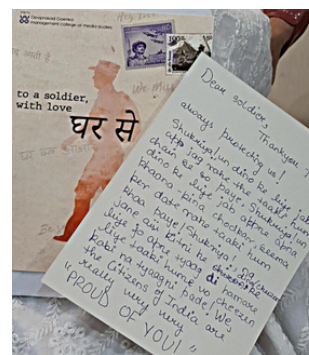 management college of media studies
100
to a soldier,
with love
घर से
We Mis
Dear soldier,
Thankyou
always protecting us!
Shukriya, un dino ke liye jab
aap jag rahe the taaki hum
chain se so paye, Shukriya un
dino ke liye jab appne apna
khaana kina chodkar, seema
per date rahe taaki hum
khaa paye! Shukriya! na
jane aisi kitni he cheezen
liye jo apne tyag di hamare
liye taaki humne vo cheezen
kabi na tyaggni pade! We
the citizens of India are
really very very
"PROUD OF YOU!"